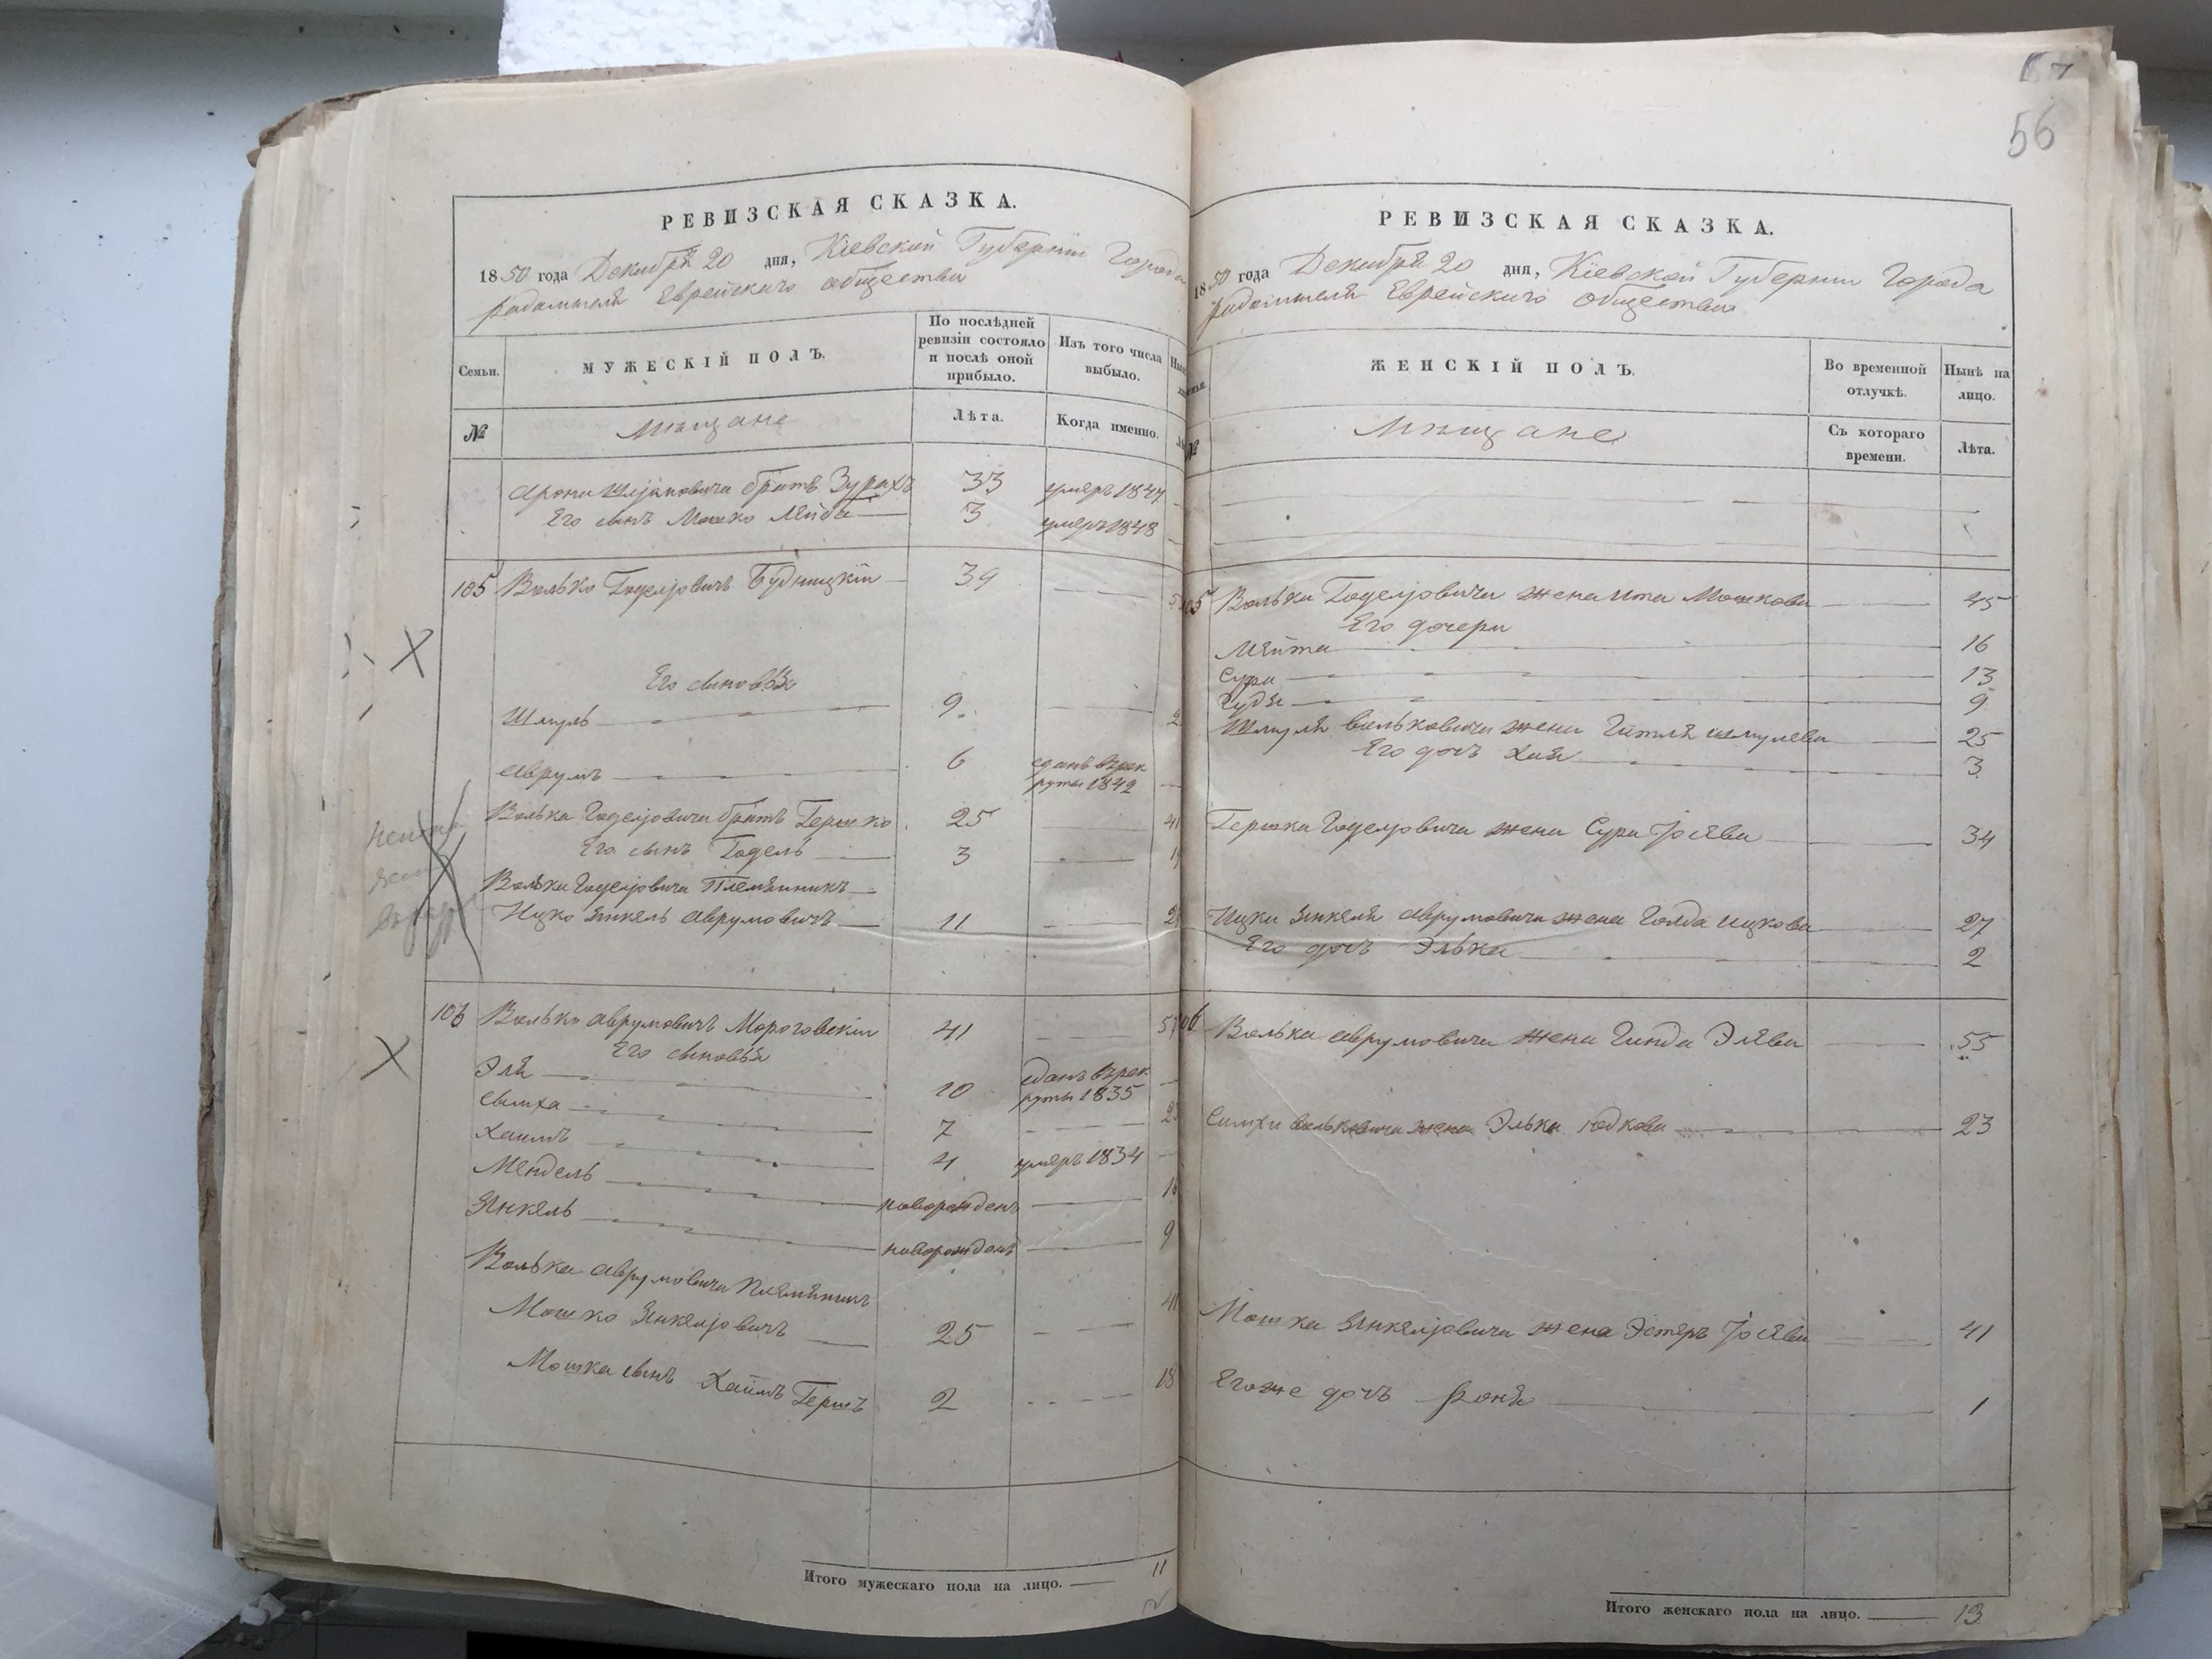 56
РЕВИЗСКАЯ СКАЗКА.
1850 года Декабря 20 дня, Кіевской Губерніи Города
Радомысля Еврейскаго общества
Семьи.
МУЖЕСКІЙ ПОЛЪ.
По послѣдней ревизіи состояло и послѣ оной прибыло.
Изъ того числа выбыло.
№
Мѣщане
Лѣта.
Когда именно.
Арона братъ Зурахъ 33 умеръ 1847
Его сынъ Мошко Лейба 3 умеръ 1848
105 Волько Годелјовичъ Будницкій 39
Его сыновья
Шмуль 9
Аврумъ 6 сданъ въ рек
руты 1842
Волька Годелјовича братъ Гершко 25 41
Его сынъ Годель 3
Волька Годелјовича Племянникъ
Ицко Янкель Аврумовичъ 11
106 Волько Аврумовичъ Мороговскій 41
Его сыновья
Эля 10 сданъ въ рек
руты 1835
Симха 7
Хаимъ 4 умеръ 1834
Мендель новорожденъ
Янкель новорожденъ 9
Волька Аврумовича племянникъ
Мошко Янкелјовичъ 25 41
Мошка сынъ Хаимъ Гершъ 2 18
Итого мужескаго пола на лицо. 11
РЕВИЗСКАЯ СКАЗКА.
1850 года Декабря 20 дня, Кіевской Губерніи Города
Радомысля Еврейскаго Общества
ЖЕНСКІЙ ПОЛЪ.
Во временной отлучкѣ.
Нынѣ на лицо.
№
Мѣщане
Съ котораго времени.
Лѣта.
Волька Годелјовича жена Ита Мошкова 45
Его дочери
Лейта 16
Сура 13
Худя 9
Шмуля Вольковича жена Гитля Шмулева 25
Его дочь Хая 3
Гершка Годелјовича жена Сура Јосева 34
Ицка Янкеля Аврумовича жена Голда Ицкова 27
Его дочь Элька 2
Волька Аврумовича жена Гинда Элева 55
Симхи Вольковича жена Элька Юдкова 23
Мошка Янкелјовича жена Эстеръ Јосева 41
Егоже дочь Роня 1
Итого женскаго пола на лицо. 13